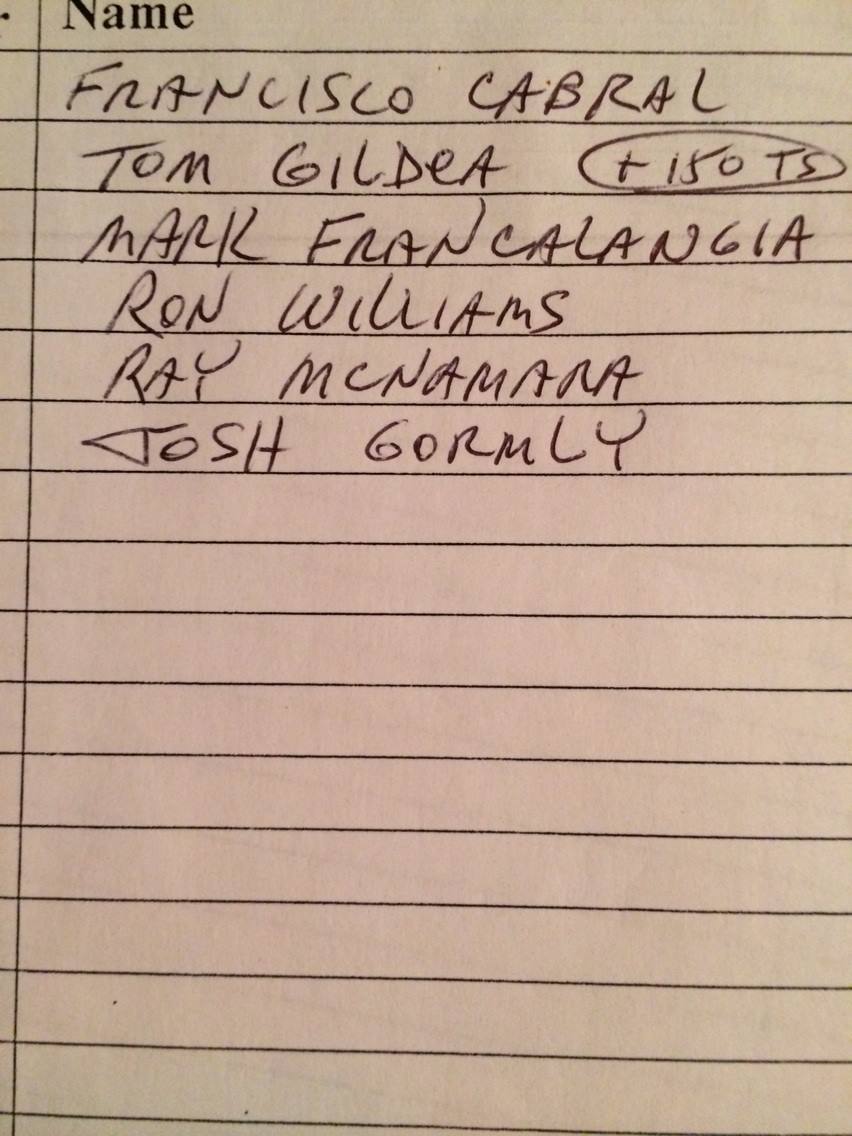 Name
FRANCISCO CABRAL
TOM GILDEA +150 TS
MARK FRANCALANGIA
RON WILLIAMS
RAY MCNAMARA
JOSH GORMLY